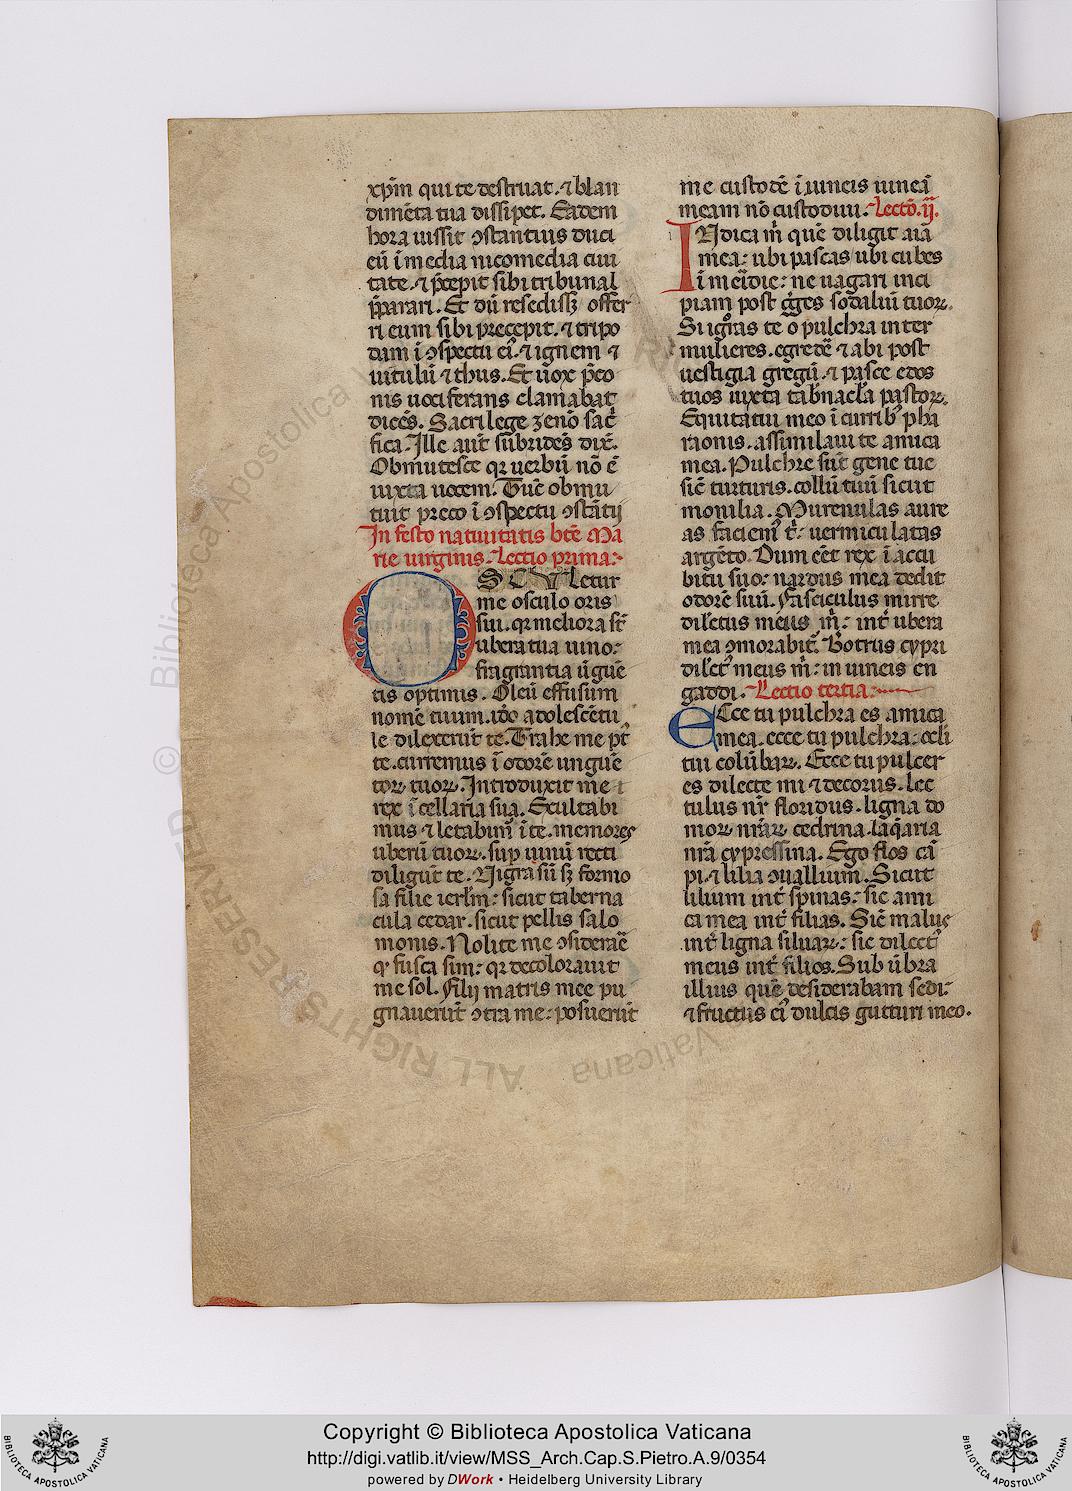 xp̄m qui te destruat. ⁊ blan
dim̄eta tua dissipet. Eadem
hora iussit ꝯstantius duci
eū ī media nicomedia ciui
tate. ⁊ p̄cepit sibi tribunal
p̄parari. Et dū resedissꝫ offer
ri eum sibi precepit. ⁊ tripo
dam ī ꝯspectu eiꝰ. ⁊ ignem ⁊
uitulū ⁊ thus. Et uox p̄co
nis uociferans clamabat
dicēs. Sacrilege zeno sac̄
fica. Ille aut̄ subridēs dix̄.
Obmutesce qꝛ uerbū nō ē
iuxta uocem. Tūc obmu
tuit preco ī ꝯspectu ꝯstātij
In festo natiuitatis btē Ma
rie uirginis. Lectio prima.
OSCVLetur
me osculo oris
sui. qꝛ meliora st̄
ubera tua uino:
fragrantia ūguē
tis optimis. Oleū effusum
nomē tuum. idō adolescētu
le dilexerūt te. Trahe me pꝰt
te. curremus ī odorē unguē
toꝝ tuoꝝ. Introduxit me
rex ī cellaria sua. Exultabi
mus ⁊ letabimꝰ ī te. memores
uberū tuoꝝ. sup uinū recti
diligūt te. Nigra sū sꝫ formo
sa filie ierlm̄: sicut taberna
cula cedar. sicut pellis salo
monis. Nolite me ꝯsiderae
qꝰ fusca sim: qꝛ decolorauit
me sol. Filij matris mee pu
gnauerūt ꝯtra me: posuerūt
me custodē ī uineis uineā
meam nō custodiui. Lectō. ij.
INdica m̄ quē diligit aīa
mea: ubi pascas ubi cubes
ī meīdie: ne uagari inci
piam post gͤges sodaliū tuoꝝ.
Si igͦras te o pulchra inter
mulieres. egredē ⁊ abi post
uestigia gregū. ⁊ pasce edos
tuos iuxta tab̄nacl̄a pastoꝝ.
Equitatui meo ī currib; pha
raonis. assimilaui te amica
mea. Pulchre sūt gene tue
sic̄ turturis. collū tuū sicut
monilia. Murenulas aure
as faciemꝰ t̄: uermiculatas
argēto. Dum eēt rex ī accu
bitu suo: nardus mea dedit
odorē suū. Fasciculus mirre
dilectus meus m̄: int̄ ubera
mea ꝯmorabit̄. Botrus cypri
dilectꝰ meus m̄: in uineis en
gaddi. Lectio tertia.
ECce tu pulchra es amica
mea. ecce tu pulchra: oc̄li
tui colūbaꝝ. Ecce tu pulcer
es dilecte mi ⁊ decorus. Lec
tulus nr̄ floridus. ligna do
moꝝ nr̄aꝝ cedrina. laqͣaria
nr̄a cypressina. Ego flos cā
pi. ⁊ lilia ꝯuallium. Sicut
lilium int̄ spinas: sic ami
ca mea int̄ filias. Sic̄ malus
int̄ ligna siluaꝝ: sic dilectꝰ
meus int̄ filios. Sub ūbra
illius quē desiderabam sedi:
⁊ fructus eiꝰ dulcis gutturi meo.
© Biblioteca Apostolica Vaticana
ALL RIGHTS RESERVED
BIBLIOTECA APOSTOLICA VATICANA
Copyright © Biblioteca Apostolica Vaticana
http://digi.vatlib.it/view/MSS_Arch.Cap.S.Pietro.A.9/0354
powered by DWork • Heidelberg University Library
BIBLIOTECA APOSTOLICA VATICANA